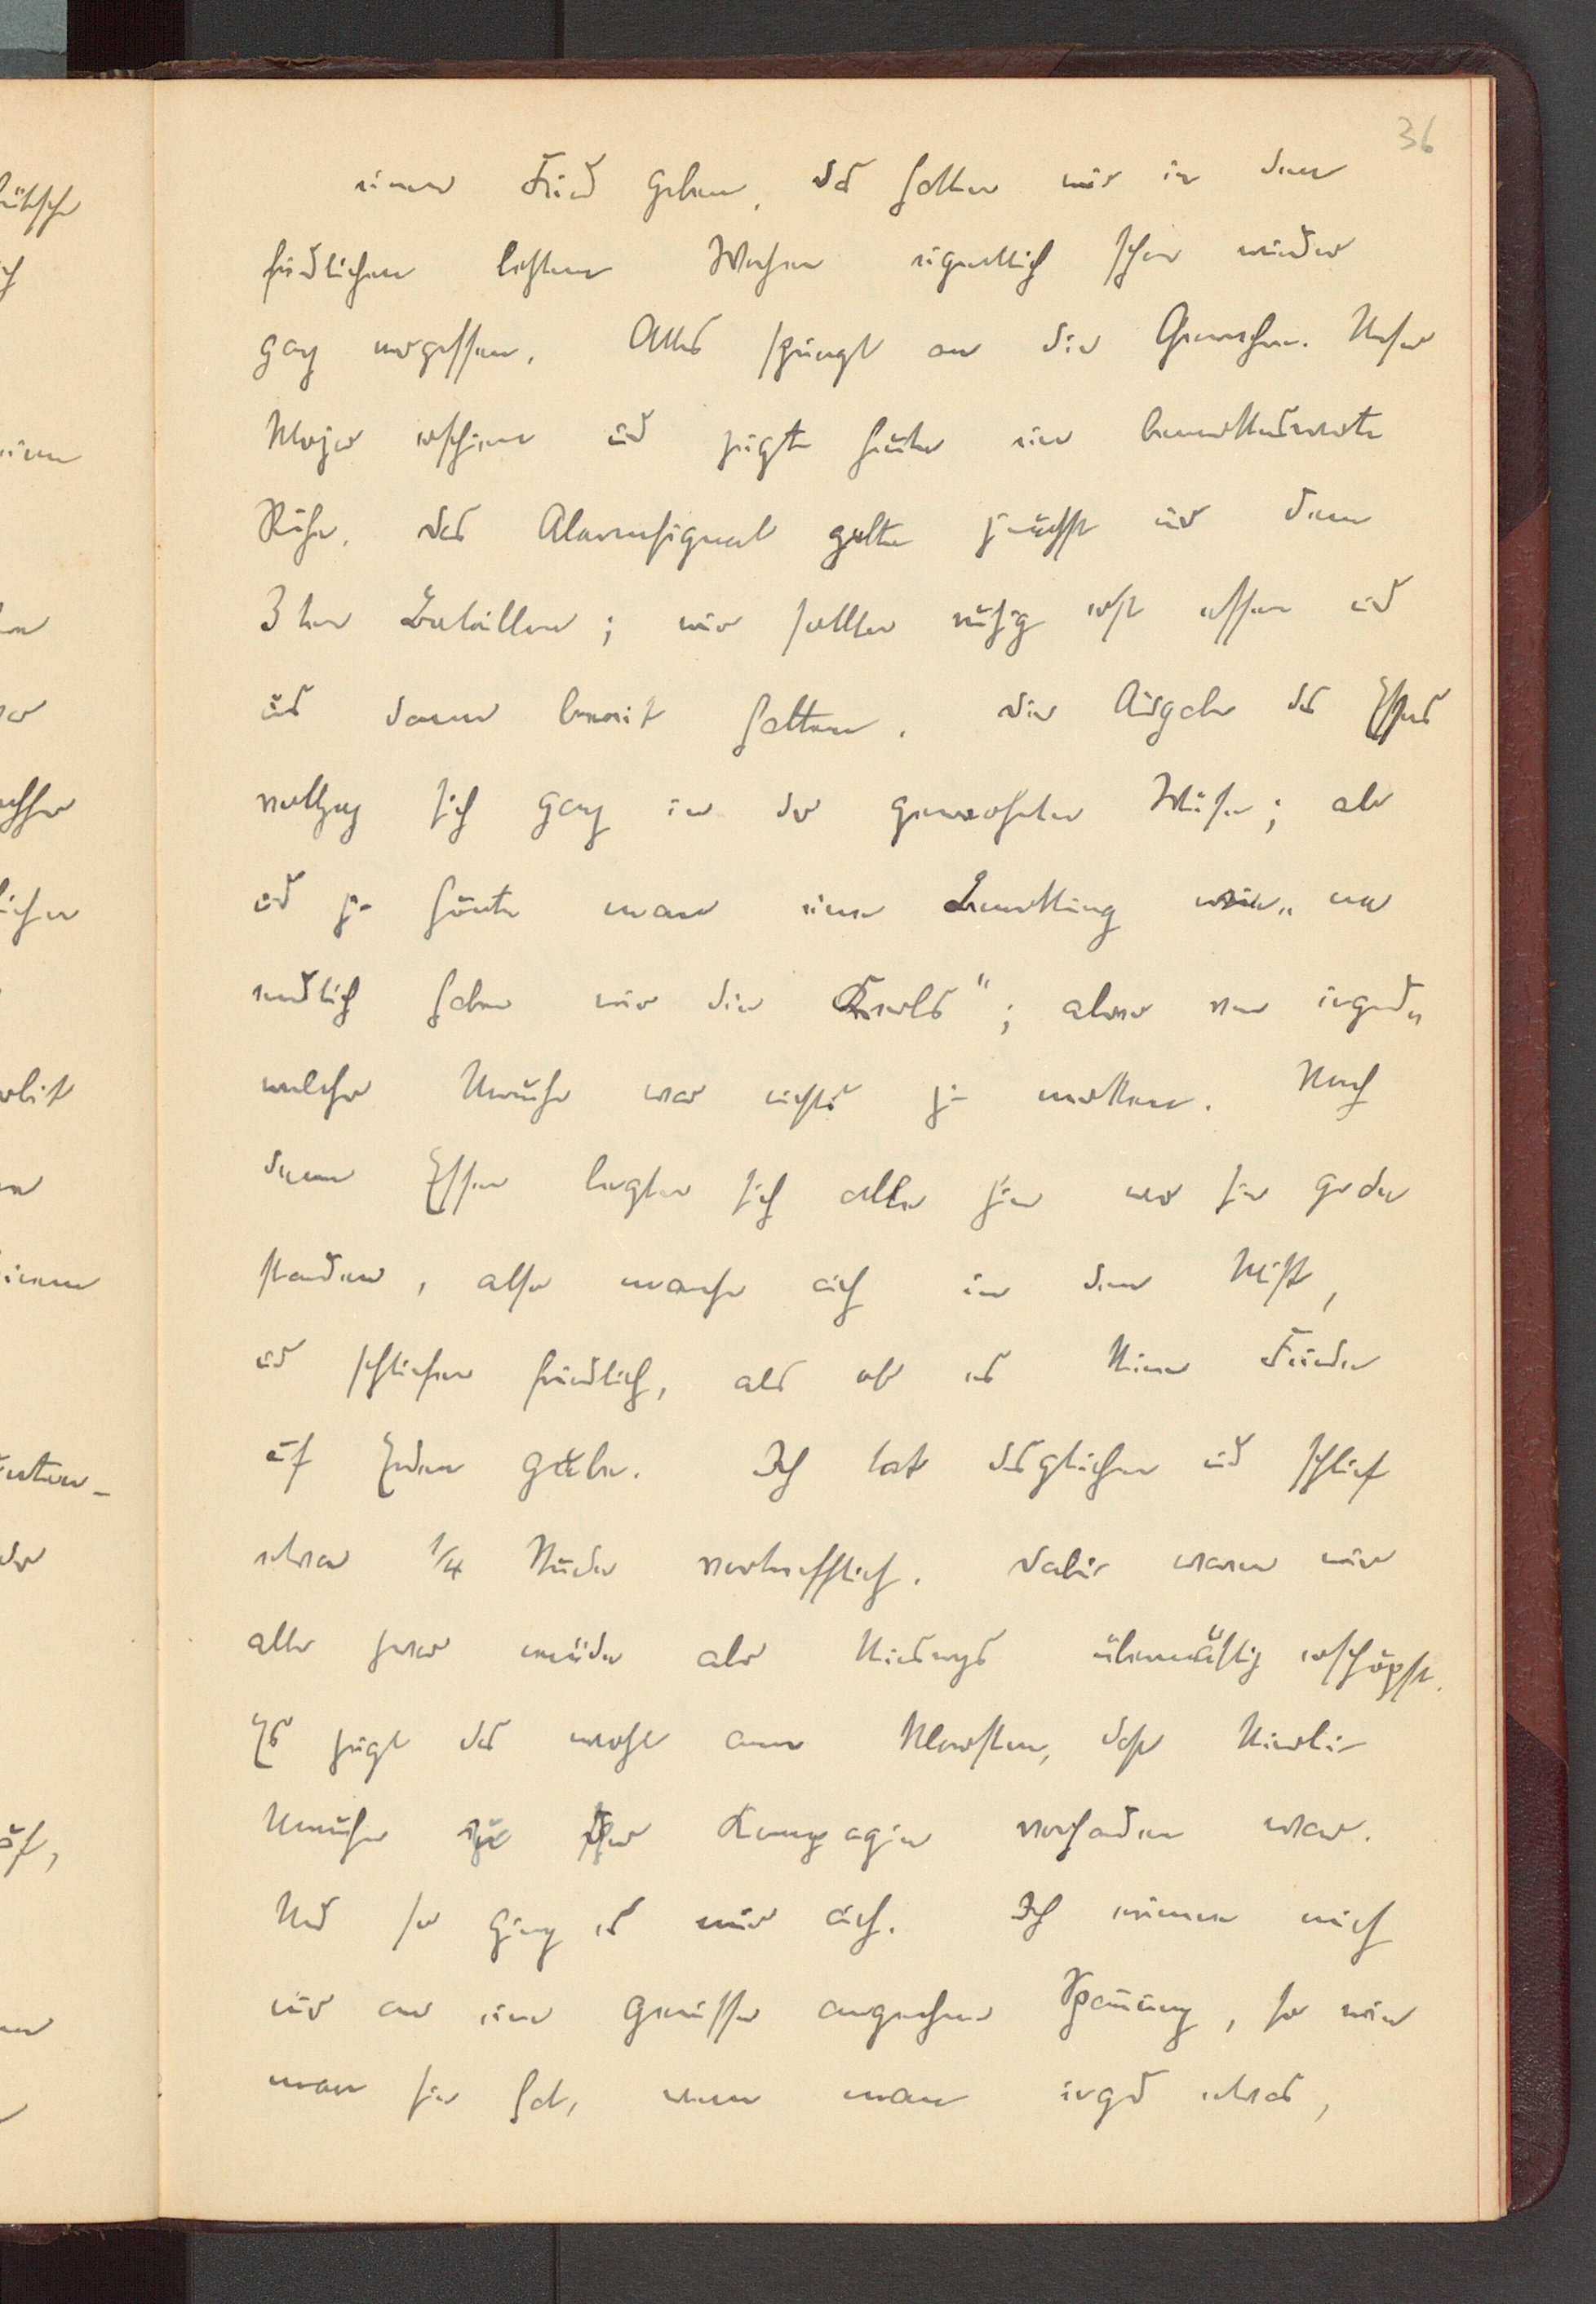 36
einen Feind geben. Das hatten wir in den
friedlichen letzten Wochen eigentlich schon wieder
ganz vergessen. Alles springt an die Gewehre. Unser
Major erschien und zeigte heute eine bemerkenswerte
Ruhe. Das Alarmsignal gelte zunächst nur dem
3ten Bataillon; wir sollten ruhig erst essen und
uns dann bereit halten. Die Ausgabe des Essens
vollzog sich ganz in der gewohnten Weise; ab
und zu hörte man eine Bemerkung wie „na
endlich haben wir die Kerls"; aber von irgend„
welcher Unruhe war nichts zu merken. Nach
dem Essen legten sich alle hin wo sie grade
standen, also manche auch in den Mist,
und schliefen friedlich, als ob es keine Feinde
auf Erden gäbe. Ich tat desgleichen und schlief
etwa 1/4 Stunde vortrefflich. Dabei waren wir
alle zwar müde aber keineswegs übermäßig erschöpft.
Es zeigt das wohl am klarsten, daß keinerlei
Unruhe in der Kompagnie vorhanden war.
Und so ging es mir auch. Ich erinnere mich
nur an eine gewisse angenehme Spannung, so wie
man sie hat, wenn man irgend etwas,